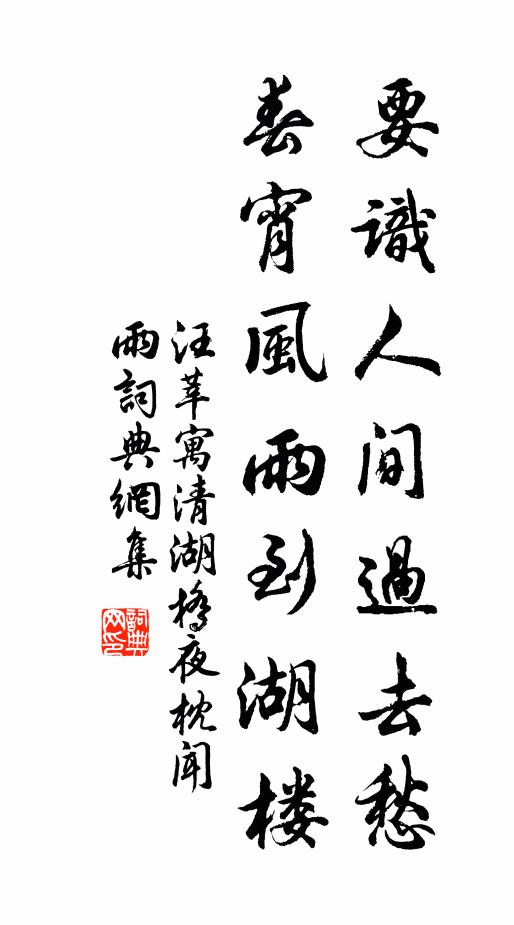 要識人間過去愁
春宵風雨到湖楼
汪莘寓清湖橋夜枕聞
雨詞典網集
詞典網印